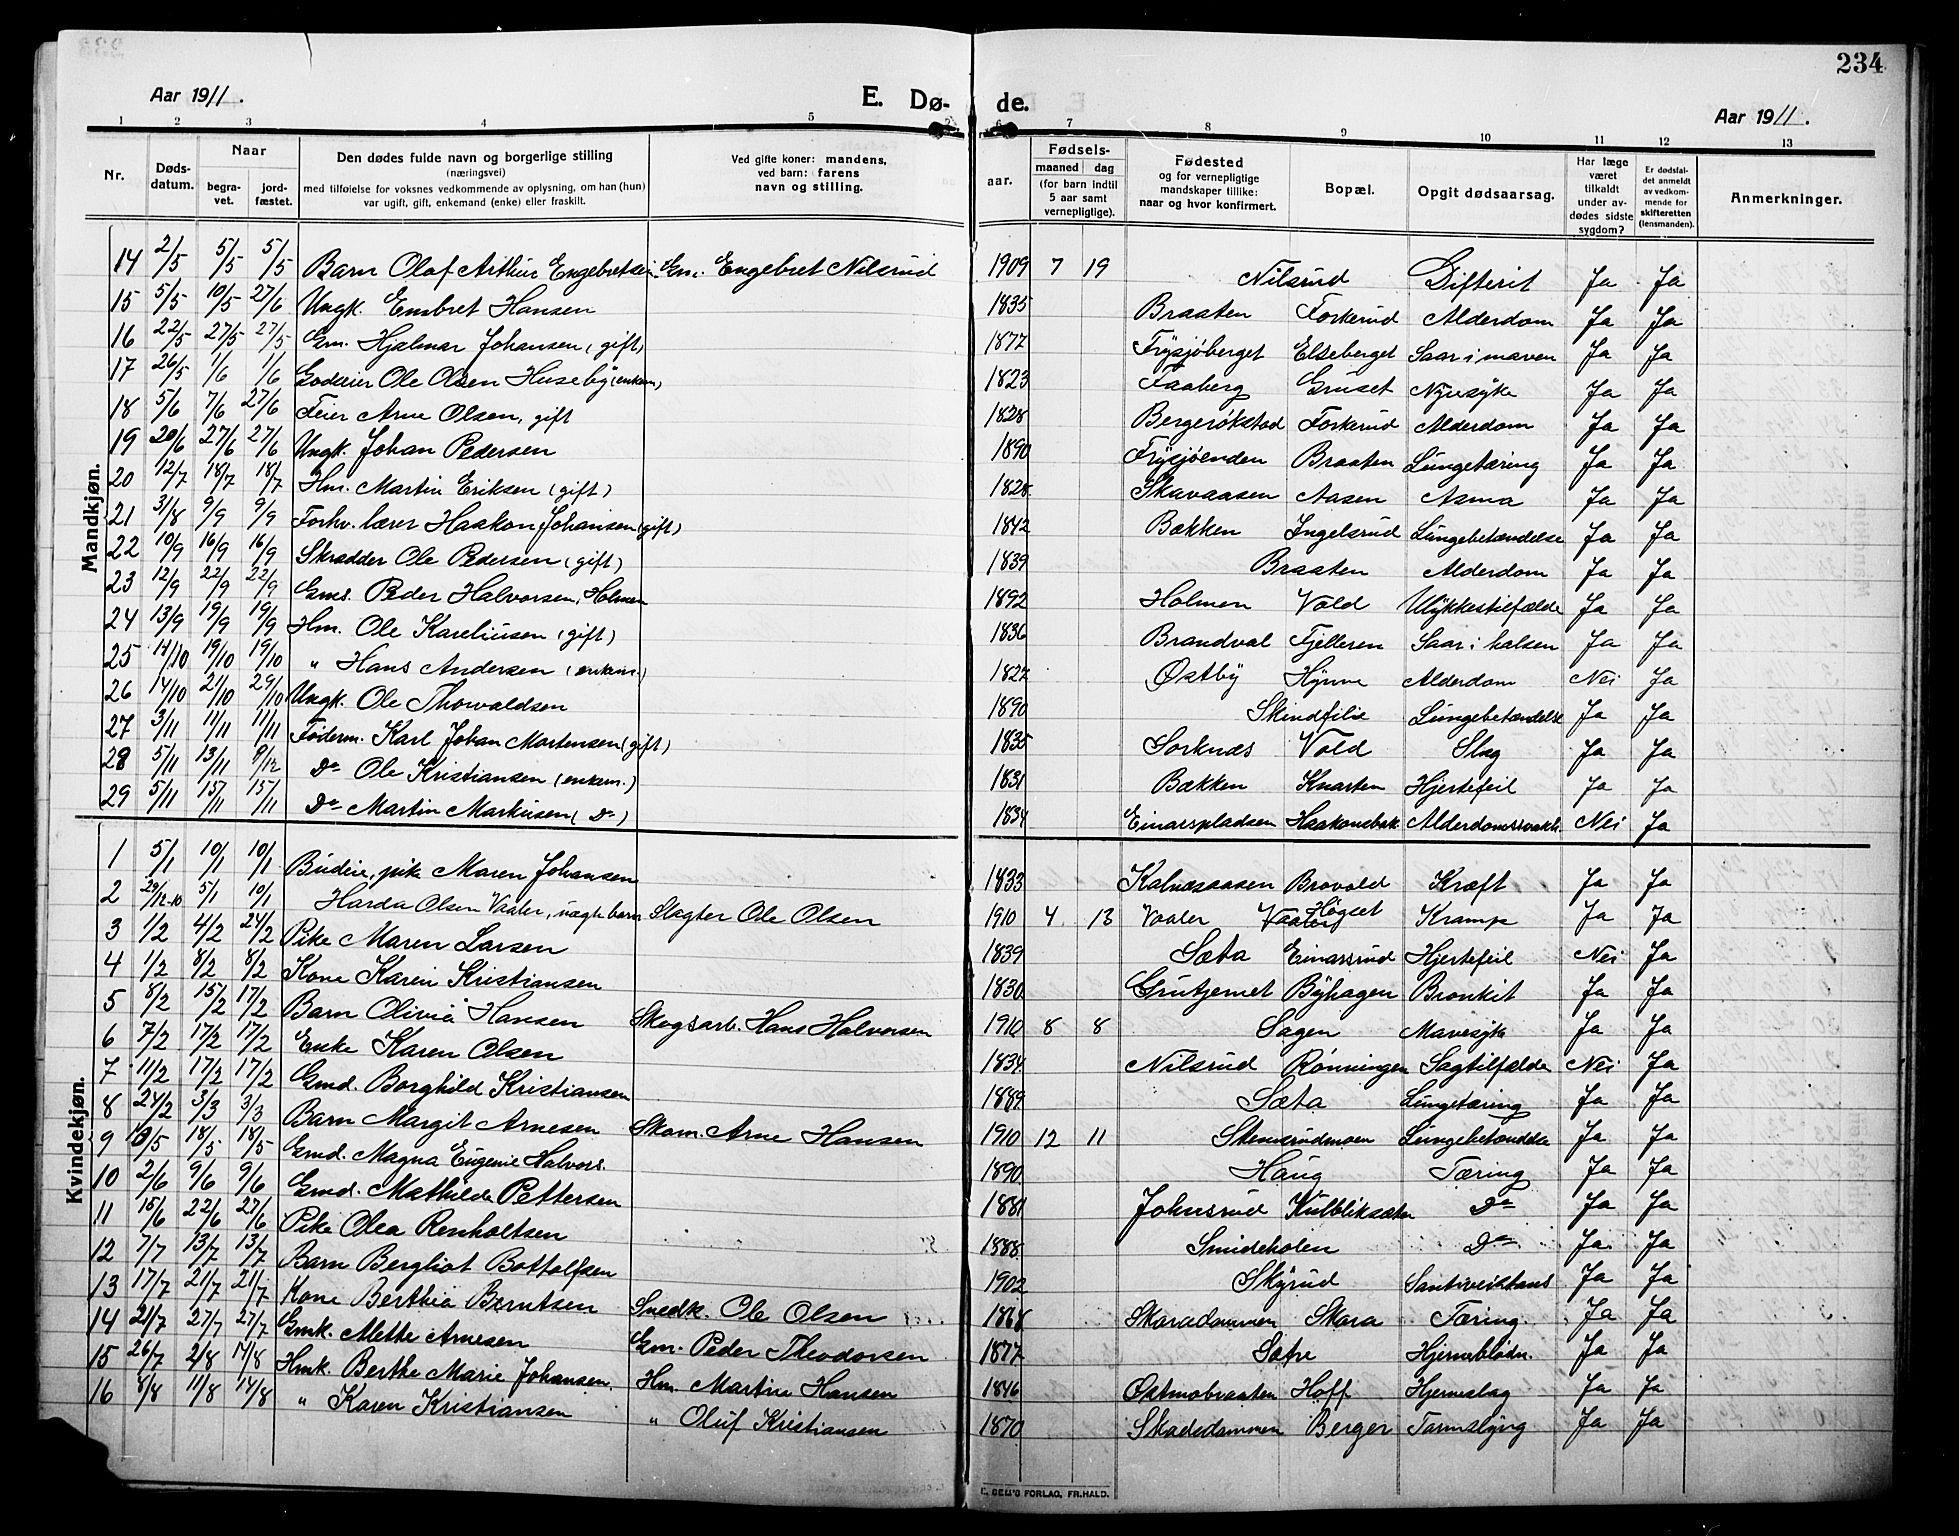 234
Aar 1911.
E. Dø-
de.
Aar 1911.
1 2 3 4 5 6 7 8 9 10 11 12 13
Nr.
Døds-datum.
Naar
begra-vet.
jord-fæstet.
Den dødes fulde navn og borgerlige stilling
(næringsvei)
med tilføielse for voksnes vedkommende av oplysning, om han (hun)
var ugift, gift, enkemand (enke) eller fraskilt.
Ved gifte koner: mandens,
ved barn: farens
navn og stilling.
Fødsels-
aar.
maaned
dag
(for barn indtil
5 aar samt
vernepligtige).
Fødested
og for vernepligtige
mandskaper tillike:
naar og hvor konfirmert.
Bopæl.
Opgit dødsaarsag.
Har læge
været
tilkaldt
under av-
dødes sidste
sygdom?
Er dødsfal-
det anmeldt
av vedkom-
mende for
skifteretten
(lensmanden).
Anmerkninger.
Mandkjøn.
14 2/5 5/5 5/5 Barn Olaf Arthur Engebretsen Gm. Engebret Nilsrud 1909 7 19 Nilsrud Difterit Ja Ja
15 5/5 10/5 27/6 Ungk. Embret Hansen 1835 Braaten Forkerud Alderdom Ja Ja
16 22/5 27/5 27/5 Gm. Hjalmar Johansen (gift) 1877 Frysjøberget Elseberget Saar i maven Ja Ja
17 26/5 1/6 1/6 Godeier Ole Olsen Huseby (enkem) 1823 Faaberg Gruset Nyresyke Ja Ja
18 5/6 7/6 27/6 Feier Arne Olsen, gift 1828 Bergerøkstad Forkerud Alderdom Ja Ja
19 20/6 27/6 27/6 Ungk. Johan Pedersen 1890 Frysjøenden Braaten Lungetæring Ja Ja
20 12/7 18/7 18/7 Hm. Martin Eriksen (gift) 1828 Skavaasen Aasen Asma Ja Ja
21 31/8 9/9 9/9 Forhv. lærer Haakon Johansen (gift) 1842 Bækken Ingelsrud Lungebetændelse Ja Ja
22 10/9 16/9 16/9 Skrædder Ole Pedersen (gift) 1839 Braaten Alderdom Ja Ja
23 12/9 22/9 22/9 Gms. Peder Halvorsen, Holmen 1892 Holmen Vold Ulykkestilfælde Ja Ja
24 13/9 19/9 19/9 Hm. Ole Kareliusen (gift) 1836 Brandval Fjelleren Saar i halsen Ja Ja
25 14/10 19/10 19/10 " Hans Andersen (enkem.) 1827 Østby Hynne Alderdom Nei Ja
26 14/10 21/10 29/10 Ungk. Ole Thorvaldsen 1890 Skindfilie Lungebetændelse Ja Ja
27 3/11 11/11 11/11 Føderm. Karl Johan Martensen (gift) 1835 Sorknæs Vold Slag Ja Ja
28 5/11 13/11 9/12 Do Ole Kristiansen (enkem.) 1831 Bækken Knarten Hjertefeil Ja Ja
29 5/11 15/11 15/11 Do Martin Markusen (Do) 1834 Einarspladsen Haakonsbak Alderdomssvakh. Nei Ja
Kvindekjøn.
1 5/1 10/1 10/1 Budeie, pike Maren Johansen 1833 Kalnæsaasen Brovold Kræft Ja Ja
2 29/12-10 5/1 10/1 Harda Olsen Vaaler, uægte barn Slagter Ole Olsen 1910 4 13 Vaaler Høgset Vaaler Krampe Ja Ja
3 1/2 4/2 24/2 Pike Maren Larsen 1839 Sæta Einarsrud Hjertefeil Nei Ja
4 1/2 8/2 8/2 Kone Karen Kristiansen 1830 Grutjernet Byhagen Bronkit Ja Ja
5 8/2 15/2 17/2 Barn Olivia Hansen Skogsarb. Hans Halvorsen 1910 8 8 Sagen Mavesyke Ja Ja
6 7/2 17/2 17/2 Enke Karen Olsen 1834 Nilsrud Rønningen Slagtilfælde Nei Ja
7 11/2 17/2 17/2 Gmd. Borghild Kristiansen 1889 Sæta Lungetæring Ja Ja
8 24/2 3/3 3/3 Barn Margit Arnesen Skom. Arne Hansen 1910 12 11 Stensrudmoen Lungebetændelse Ja Ja
9 13/5 18/5 18/5 Gmd. Magna Eugenie Halvors. 1890 Haug Tæring Ja Ja
10 2/6 9/6 9/6 Gmd. Mathilde Pettersen 1881 Johnsrud Kulbliksæter Do Ja Ja
11 15/6 22/6 27/6 Pike Olea Renholtsen 1888 Smideholen Do Ja Ja
12 7/7 13/7 13/7 Barn Bergliot Bottolfsen 1902 Skyrud Santiveitdans Ja Ja
13 17/7 21/7 21/7 Kone Berthea Berntsen Snedk. Ole Olsen 1868 Skaradammen Skara Tæring Ja Ja
14 21/7 27/7 27/7 Gmk. Mette Arnesen Gm. Peder Theodorsen 1877 Sætre Hjerneblødn. Ja Ja
15 26/7 2/8 14/8 Hmk. Berthe Marie Johansen. Hm. Martin Hansen 1846 Østmobraaten Hoff Hjerneslag Ja Ja
16 8/8 11/8 14/8 " Karen Kristiansen " Oluf Kristiansen 1870 Skadedammen Berger Tarmslyng Ja Ja
FORLAG, FR.HALD.